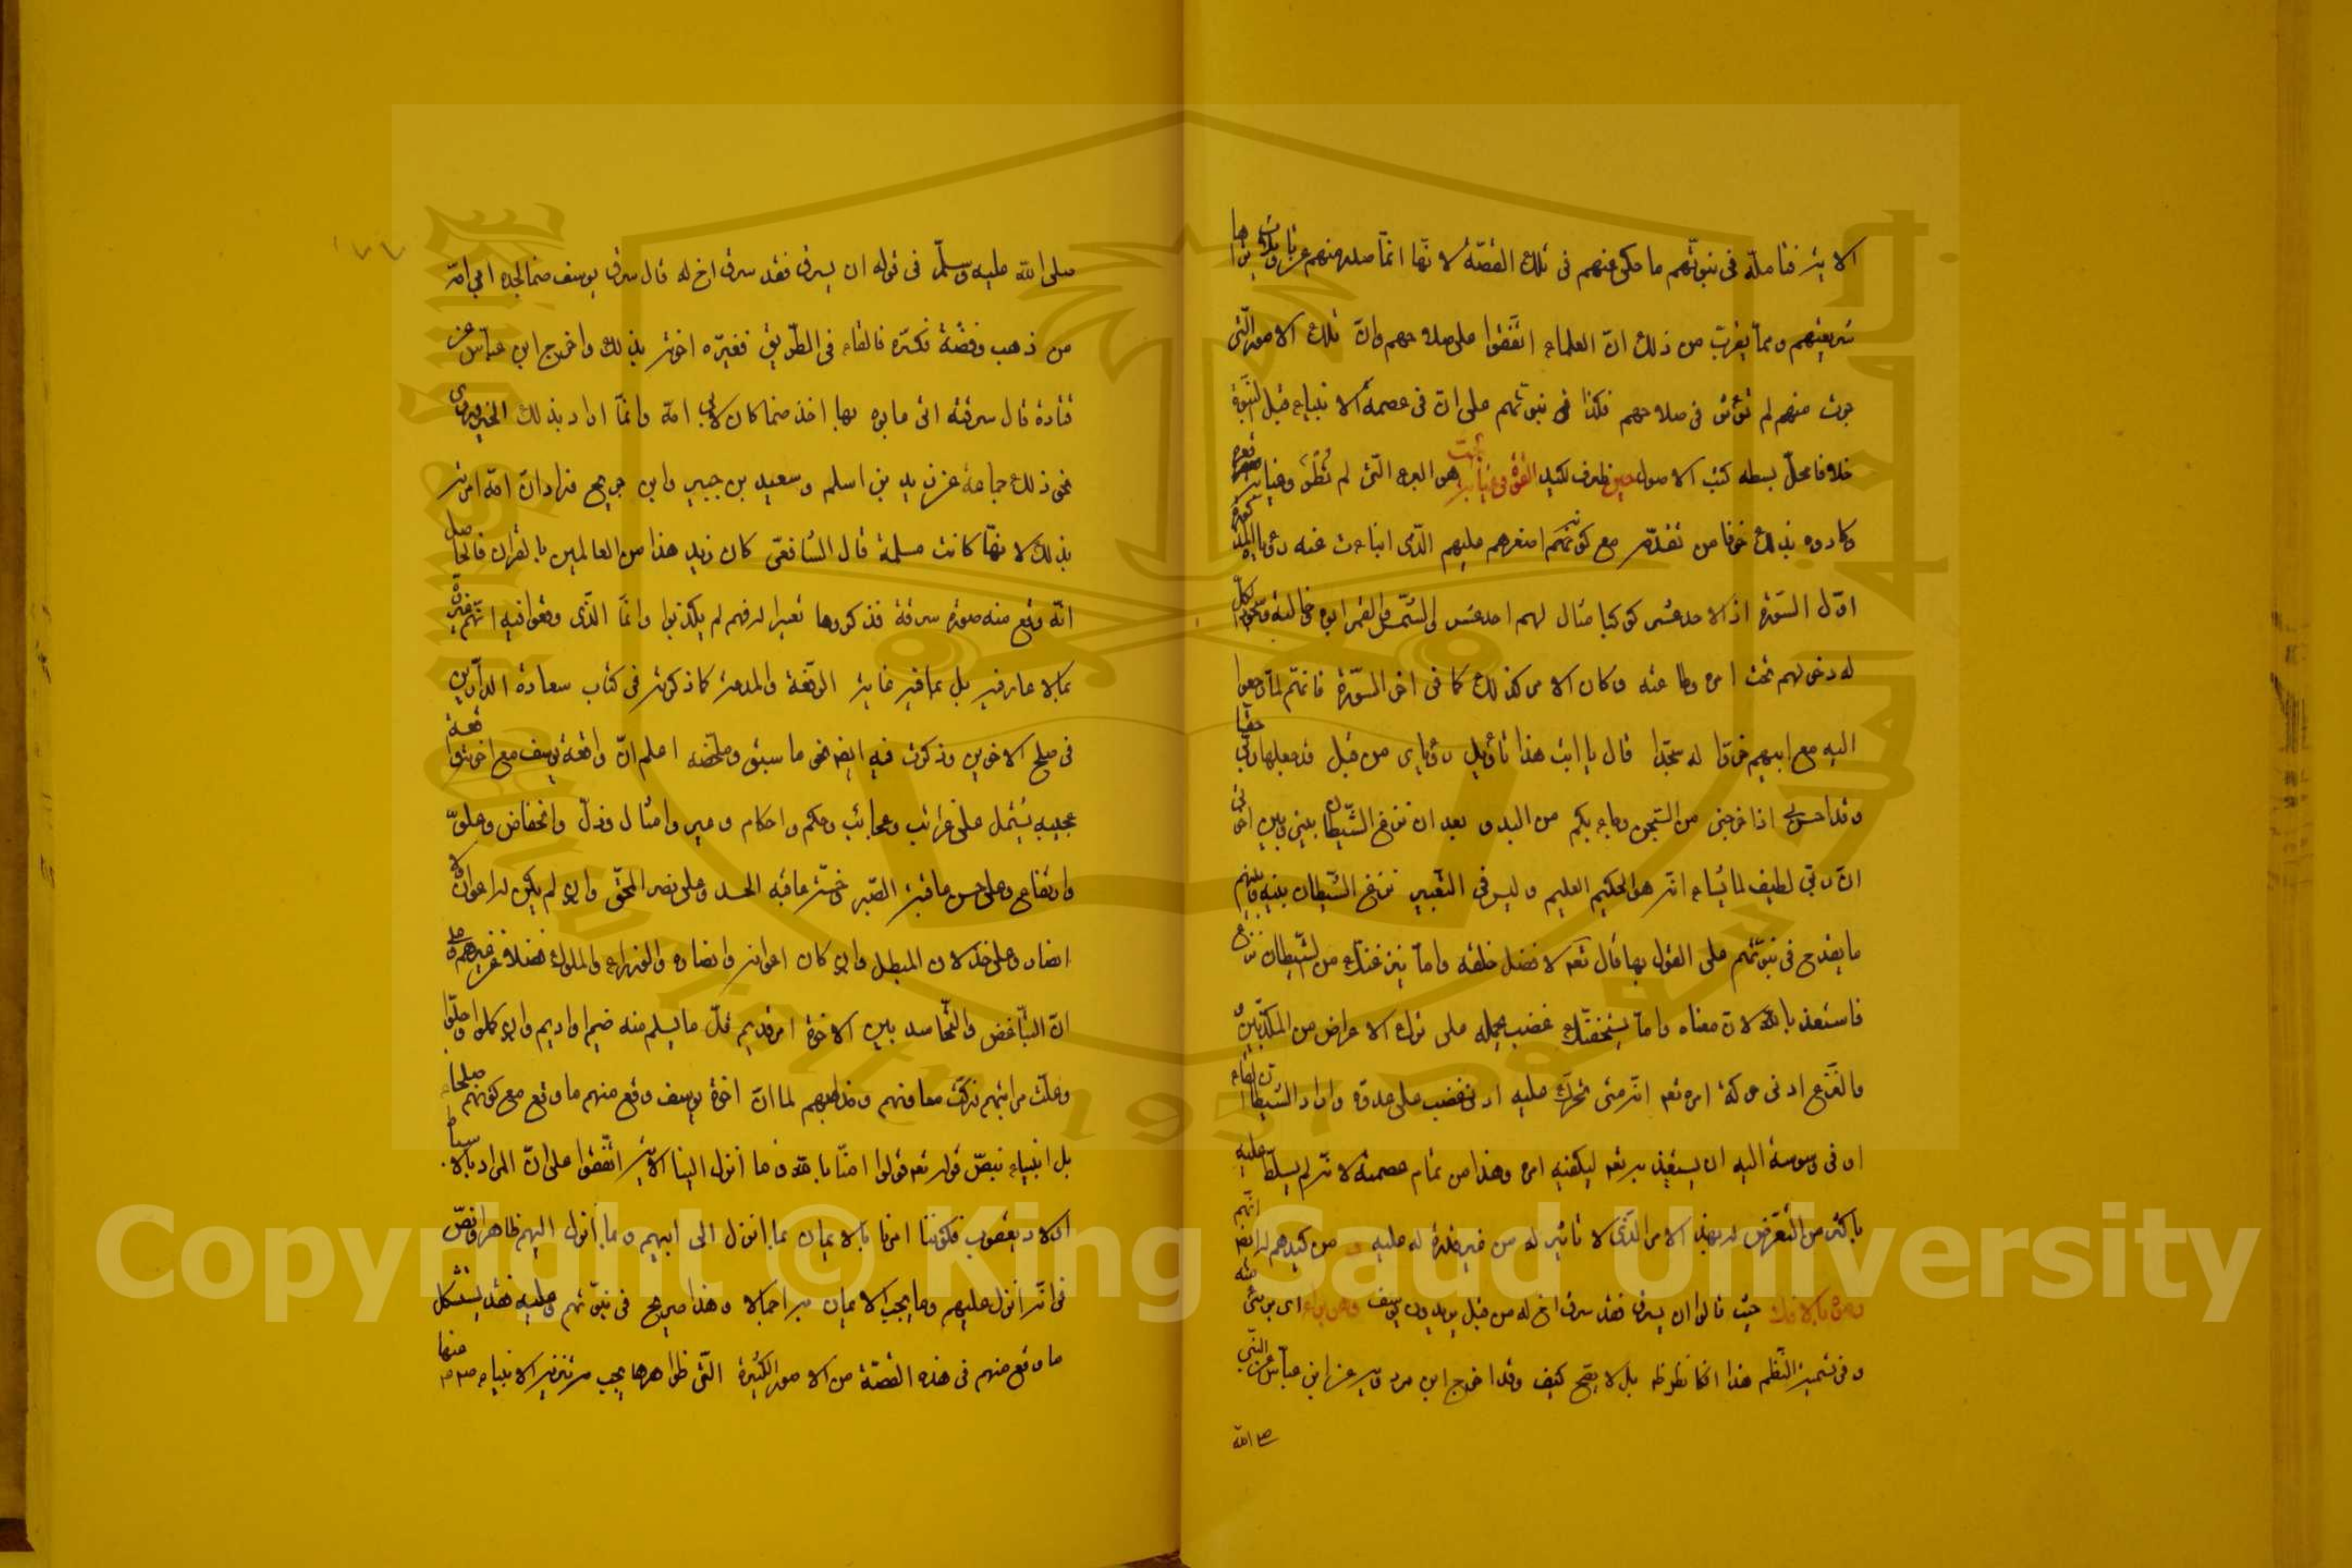 الاية فتأمله في نبوتهم ما حكي عنهم في تلك القصة لانها انما صدر منهم عن تأويلات هنا
شريعتهم ومما يقرب من ذلك ان العلماء اتفقوا على صلاحهم وان تلك الامور التي
جرت منهم لم تؤثر في صلاحهم فكذا في نبوتهم على ان في عصمة الانبياء قبل النبوة
خلافا محل بسطه كتب الاصول حين ظرف لكيد القوه في غيابت هو البير التي لم تطو
وكادوه بذلك خوفا من تقدمه مع كونهم اصغرهم عليهم الذي انبأت عنه رؤياه
اول السورة اذ الاحد عشر كوكبا مثال لهم احد عشر والشمس والقمر ابوه خالته وسجود الكل
له دخولهم تحت امره وطاعته وكان الامر كذلك كما في اخر السورة فانهم لما رجعوا
اليه مع ابيهم خروا له سجدا قال يا ابت هذا تأويل رؤياي من قبل قد جعلها ربي حقا
وقد احسن بي اذ اخرجني من السجن وجاء بكم من البدو بعد ان نزغ الشيطان بيني وبين اخوتي
ان ربي لطيف لما يشاء انه هو الحكيم العليم وليس في التعبير بنزغ الشيطان بينه وبينهم
ما يقدح في نبوتهم على القول بها قال تعالى لافضل خلقه واما ينزغنك من الشيطان نزغ
فاستعذ بالله لان معناه واما يستخفنك غضب يحمله على ترك الاعراض عن المكذبين
والنزغ ادنى حركة امره تعالى انه متى تحرك عليه ادنى غضب على عدوه واراد الشيطان القاء
ادنى وسوسة اليه ان يستعيذ بربه ليكفيه امره وهذا من تمام عصمته لانه لم يسلط عليه
باكثر من التعرض له بهذا الامر الذي لا تأثير له من غير قدرة له عليه ومن كيدهم له ايضا انهم
رموه بالافك حيث قالوا ان يسرق فقد سرق اخ له من قبل يريدون يوسف وهو براء اي بريء منه
وفي تسمية النظم هذا افكا نظر ظاهر بل لا يصح كيف وقد اخرج ابن مردويه عن ابن عباس عن النبي
صلى الله
صلى الله عليه وسلم في قوله ان يسرق فقد سرق اخ له قال سرق يوسف صنما لجده ابي امه
من ذهب وفضة فكسره فالقاه في الطريق فعيره اخوته بذلك واخرج ابن عباس عن
قتادة قال سرقته التي عابوه بها اخذ صنما كان لابي امه وانما اراد بذلك الخير وروي
نحو ذلك جماعة عن زيد بن اسلم وسعيد بن جبير وابن جريج فزاد ان امه امرته
بذلك لانها كانت مسلمة قال الشافعي كان زيد هذا من العالمين بالقرآن فالحاصل
انه وقع منه صورة سرقة فذكروها تعييرا له فهم لم يكذبوا وانما الذي وقعوا فيه انهم عيروه
بما لا عار فيه بل بما فيه غاية الرفعة والمدحة كما ذكرته في كتاب سعادة الدارين
في صلح الاخوين وذكرت فيه ايضا نحو ما سبق وملخصه اعلم ان واقعة يوسف مع اخوته واقعة
عجيبة تشتمل على غرائب وعجائب وحكم واحكام وعبر وامثال وذل وانخفاض وعلو
وارتفاع وعلى حسن عاقبة الصبر وخسة عاقبة الحسد وعلى نصر المحق وان لم يكن له اعوان ولا
انصار وعلى خذلان المبطل وان كان اعوانه وانصاره والوزراء والملوك فضلا عن غيرهم وعلى
ان التباغض والتحاسد بين الاخوة امر قديم قل ما يسلم منه ضم او اديم وان كملوا وجلوا
وعلت مراتبهم وزكت معارفهم ومذاهبهم لما ان اخوة يوسف وقع منهم ما وقع مع كونهم صلحاء
بل انبياء بنص قوله تعالى قولوا امنا بالله وما انزل الينا الاية اتفقوا على ان المراد بالاسباط
اولاد يعقوب فكوننا امرنا بالايمان بما انزل الى ابيهم وبما انزل اليهم ظاهر او نص
في انه انزل عليهم وحي يجب الايمان به اجمالا وهذا صريح في نبوتهم وعليه فقد يستشكل
ما وقع منهم في هذه القصة من الامور الكثيرة التي ظواهرها يجب تنزيه الانبياء منها
١٧٧
Copyright © King Saud University
King Saud University
جامعة الملك سعود
1957